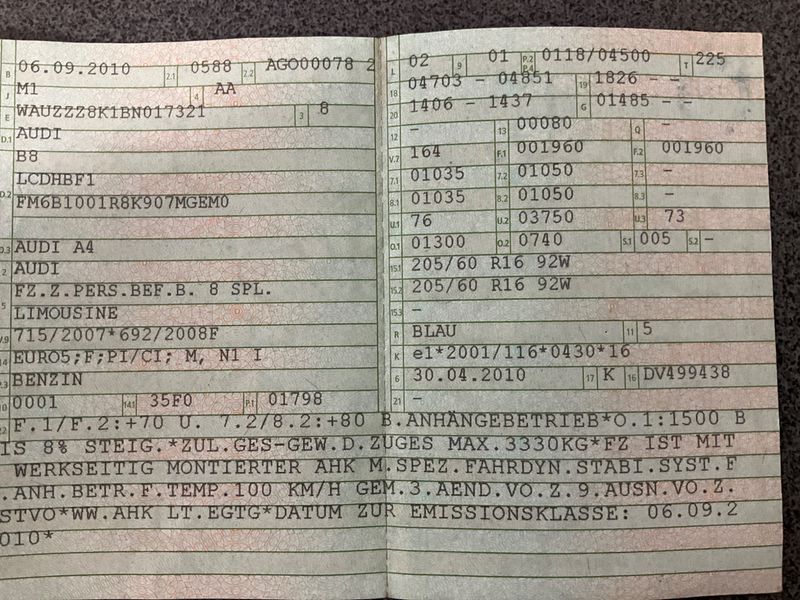 B 06.09.2010 2.1 0588 2.2 AGO00078 2
J M1 4 AA
E WAUZZZ8K1BN017321 3 8
D.1 AUDI
B8
D.2 LCDHBF1
FM6B1001R8K907MGEM0
D.3 AUDI A4
2 AUDI
5 FZ.Z.PERS.BEF.B. 8 SPL.
LIMOUSINE
V.9 715/2007*692/2008F
14 EURO5;F;PI/CI; M, N1 I
P.3 BENZIN
10 0001 14.1 35F0 P.1 01798
L 02 9 01 P.2 P.4 0118/04500 T 225
18 04703 - 04851 19 1826 - -
20 1406 - 1437 G 01485 - -
12 - 13 00080 Q -
V.7 164 F.1 001960 F.2 001960
7.1 01035 7.2 01050 7.3 -
8.1 01035 8.2 01050 8.3 -
U.1 76 U.2 03750 U.3 73
O.1 01300 O.2 0740 S.1 005 S.2 -
15.1 205/60 R16 92W
15.2 205/60 R16 92W
15.3 -
R BLAU 11 5
K e1*2001/116*0430*16
6 30.04.2010 17 K 16 DV499438
21 -
22 F.1/F.2:+70 U. 7.2/8.2:+80 B.ANHÄNGEBETRIEB*O.1:1500 B
IS 8% STEIG.*ZUL.GES-GEW.D.ZUGES MAX.3330KG*FZ IST MIT
WERKSEITIG MONTIERTER AHK M.SPEZ.FAHRDYN.STABI.SYST.F
.ANH.BETR.F.TEMP.100 KM/H GEM.3.AEND.VO.Z.9.AUSN.VO.Z.
STVO*WW.AHK LT.EGTG*DATUM ZUR EMISSIONSKLASSE: 06.09.2
010*